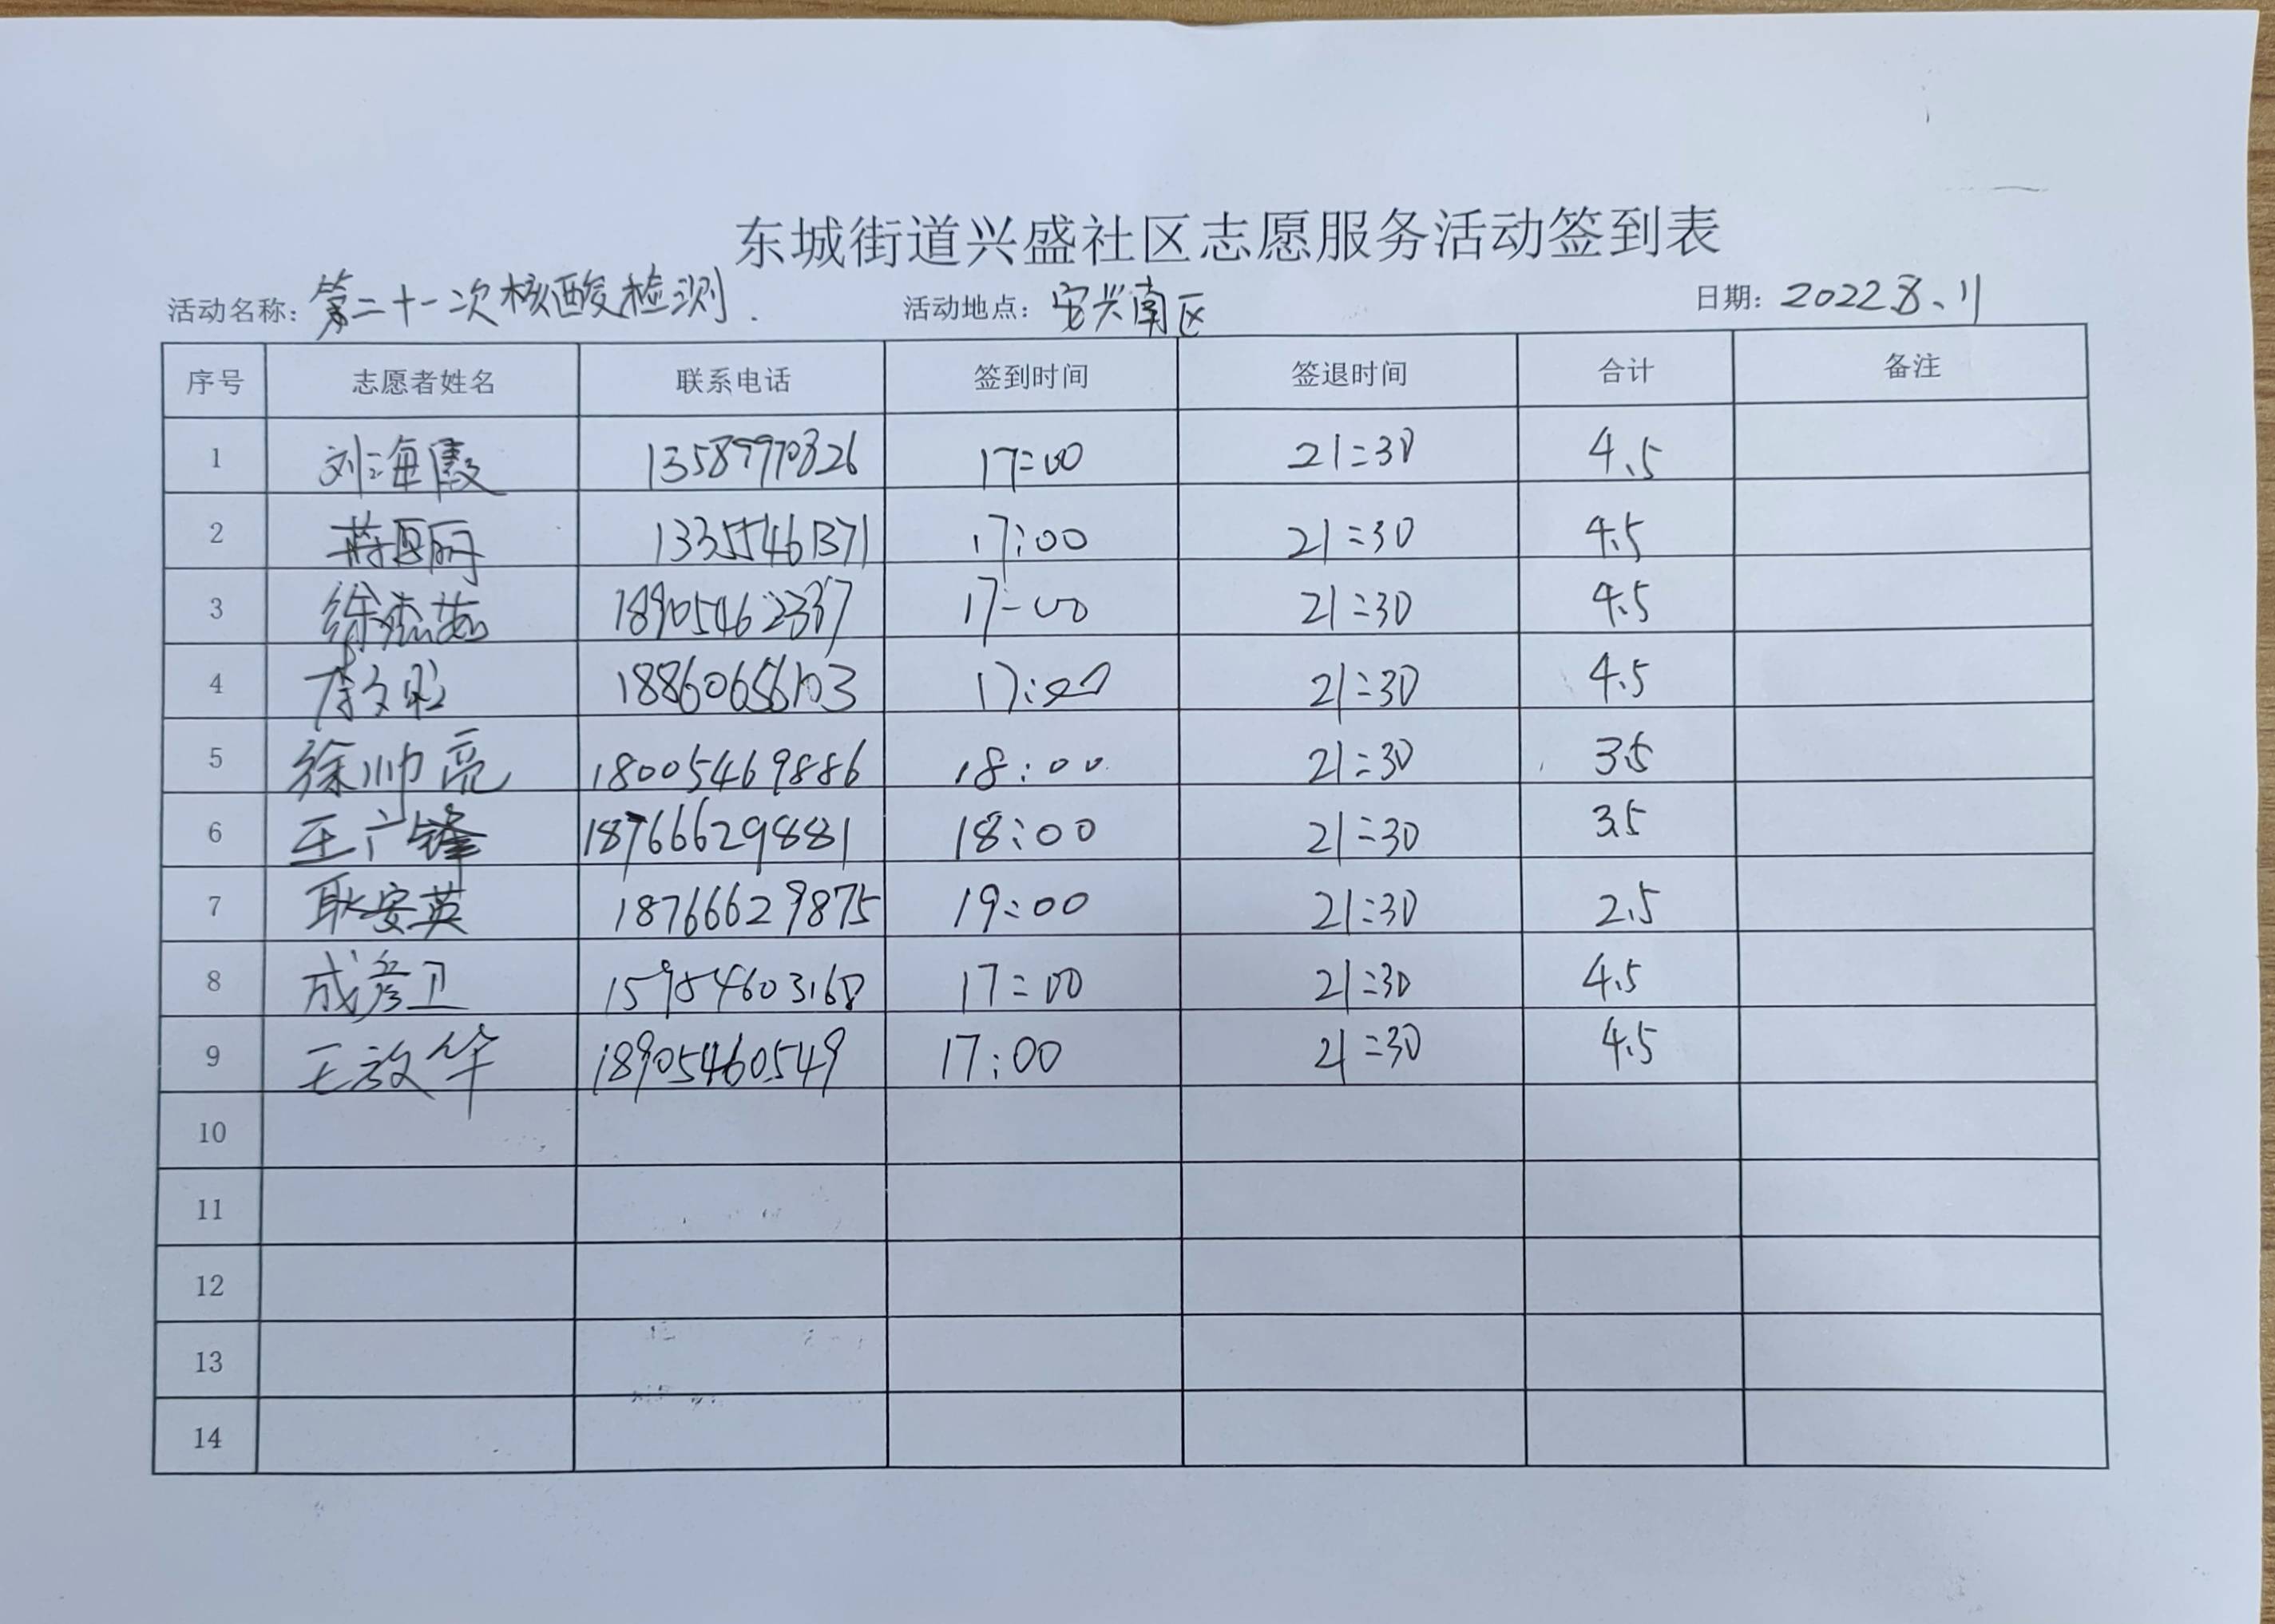 东城街道兴盛社区志愿服务活动签到表
活动名称：第二十一次核酸检测. 活动地点：安兴南区 日期：2022.8、11
序号 志愿者姓名 联系电话 签到时间 签退时间 合计 备注
1 刘海霞 13589970326 17:00 21:30 4.5
2 蒋恩丽 13355461371 17:00 21:30 4.5
3 18905462337 17-00 21:30 4.5
4 18860656103 17:00 21:30 4.5
5 徐帅亮 18005469886 18:00 21:30 3.5
6 王广锋 18766629881 18:00 21:30 3.5
7 耿安英 18766629875 19:00 21:30 2.5
8 成彦卫 15954603160 17:00 21:30 4.5
9 王放华 18905460549 17:00 21:30 4.5
10
11
12
13
14